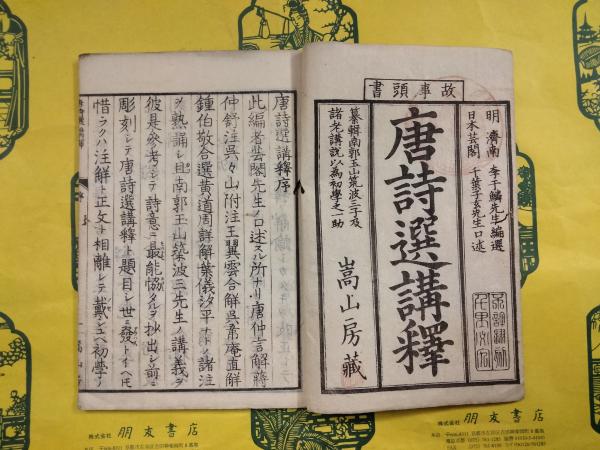 故事頭書
明 濟南 李于鱗先生編選
日本芸閣 千葉子玄先生口述
唐詩選講釋
纂輯南郭玉山筑波三子及
諸老講說以為初學之一助
嵩山房藏
唐詩選講釋序
此編者芸閣先生口述スル所ナリ唐仲言解蔣
仲舒注呉々山附注王翼雲合解呉箒庵直解
鍾伯敬合選黄道周詳解葉儀汐平ナトノ諸注
ヲ熟誦シ且南郭玉山築波三先生ノ講義ヲ
彼是參考シテ詩意ニ最能恊タルヲ抄出シ前ニ
彫刻シテ唐詩選講釋ト題目シ世ニ發トイヘ𪜈
惜ラクハ注解ト正文ト相離レテ戴シユヘ初學ノ
株式会社 朋友書店
株式会社 朋友書店